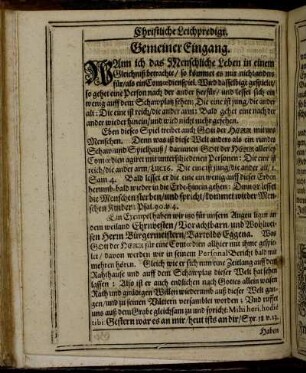 Christliche Leichpredigt.
Gemeiner Eingang.
WAnn ich das Menschliche Leben in einem
Gleichniß betrachte / so kommet es mir nicht anders
für / als ein Comœdienspiel. Wann dasselbige gespielet /
so gehet eine Person nach der ander herfür / und lesset sich ein
wenig auff dem Schawplatz sehen: Die eine ist jung / die ander
alt: Die eine ist reich / die ander arm: Bald gehet eine nach der
ander wieder hinein / und wird nicht mehr gesehen.
Eben dieses Spiel treibet auch GOtt der HERR mit uns
Menschen. Denn was ist diese Welt anders als ein rundes
Schaw- und Spielhauß / darinnen GOtt der HERR allerley
Comœdien agiret mit unterschiedenen Personen: Die eine ist
reich / die ander arm / Luc. 16. Die eine ist jung / die ander alt /
Sam. 4. Bald lesset er die eine ein wenig auff dieser Erden
herumb bald wieder in die Erde hinein gehen: Denn Er lesset
die Menschen sterben / und spricht / kommet wieder Men-
schen Kinder: Psal. 90. v. 4.
Ein Exempel haben wir itzo für unsern Augen ligen an
dem weiland Ehrnvesten / Vorachtbarn und Wolweisen
Herrn Bürgermeistern / Bartoldo Eggena. Was
GOtt der HERR für eine Comœdien allhier mit ihme gespie-
let / davon werden wir in seinem Personal Bericht bald mit
mehren hören. Gleich wie er sich nun eine Zeitlang auff dem
Rahthause und auff dem Schawplatz dieser Welt hat sehen
lassen: Also ist er auch endlichen nach Gottes allein weisen
Rath und gnädigen Willen wiederumb auß dieser Welt gan-
gen / und zu seinen Vättern versamblet worden: Und ruffet
uns auß dem Grabe gleichsam zu und spricht: Mihi heri, hodiè
tibi: Gestern war es an mir / heut ists an dir / Syr. 38 v. 23.
Haben